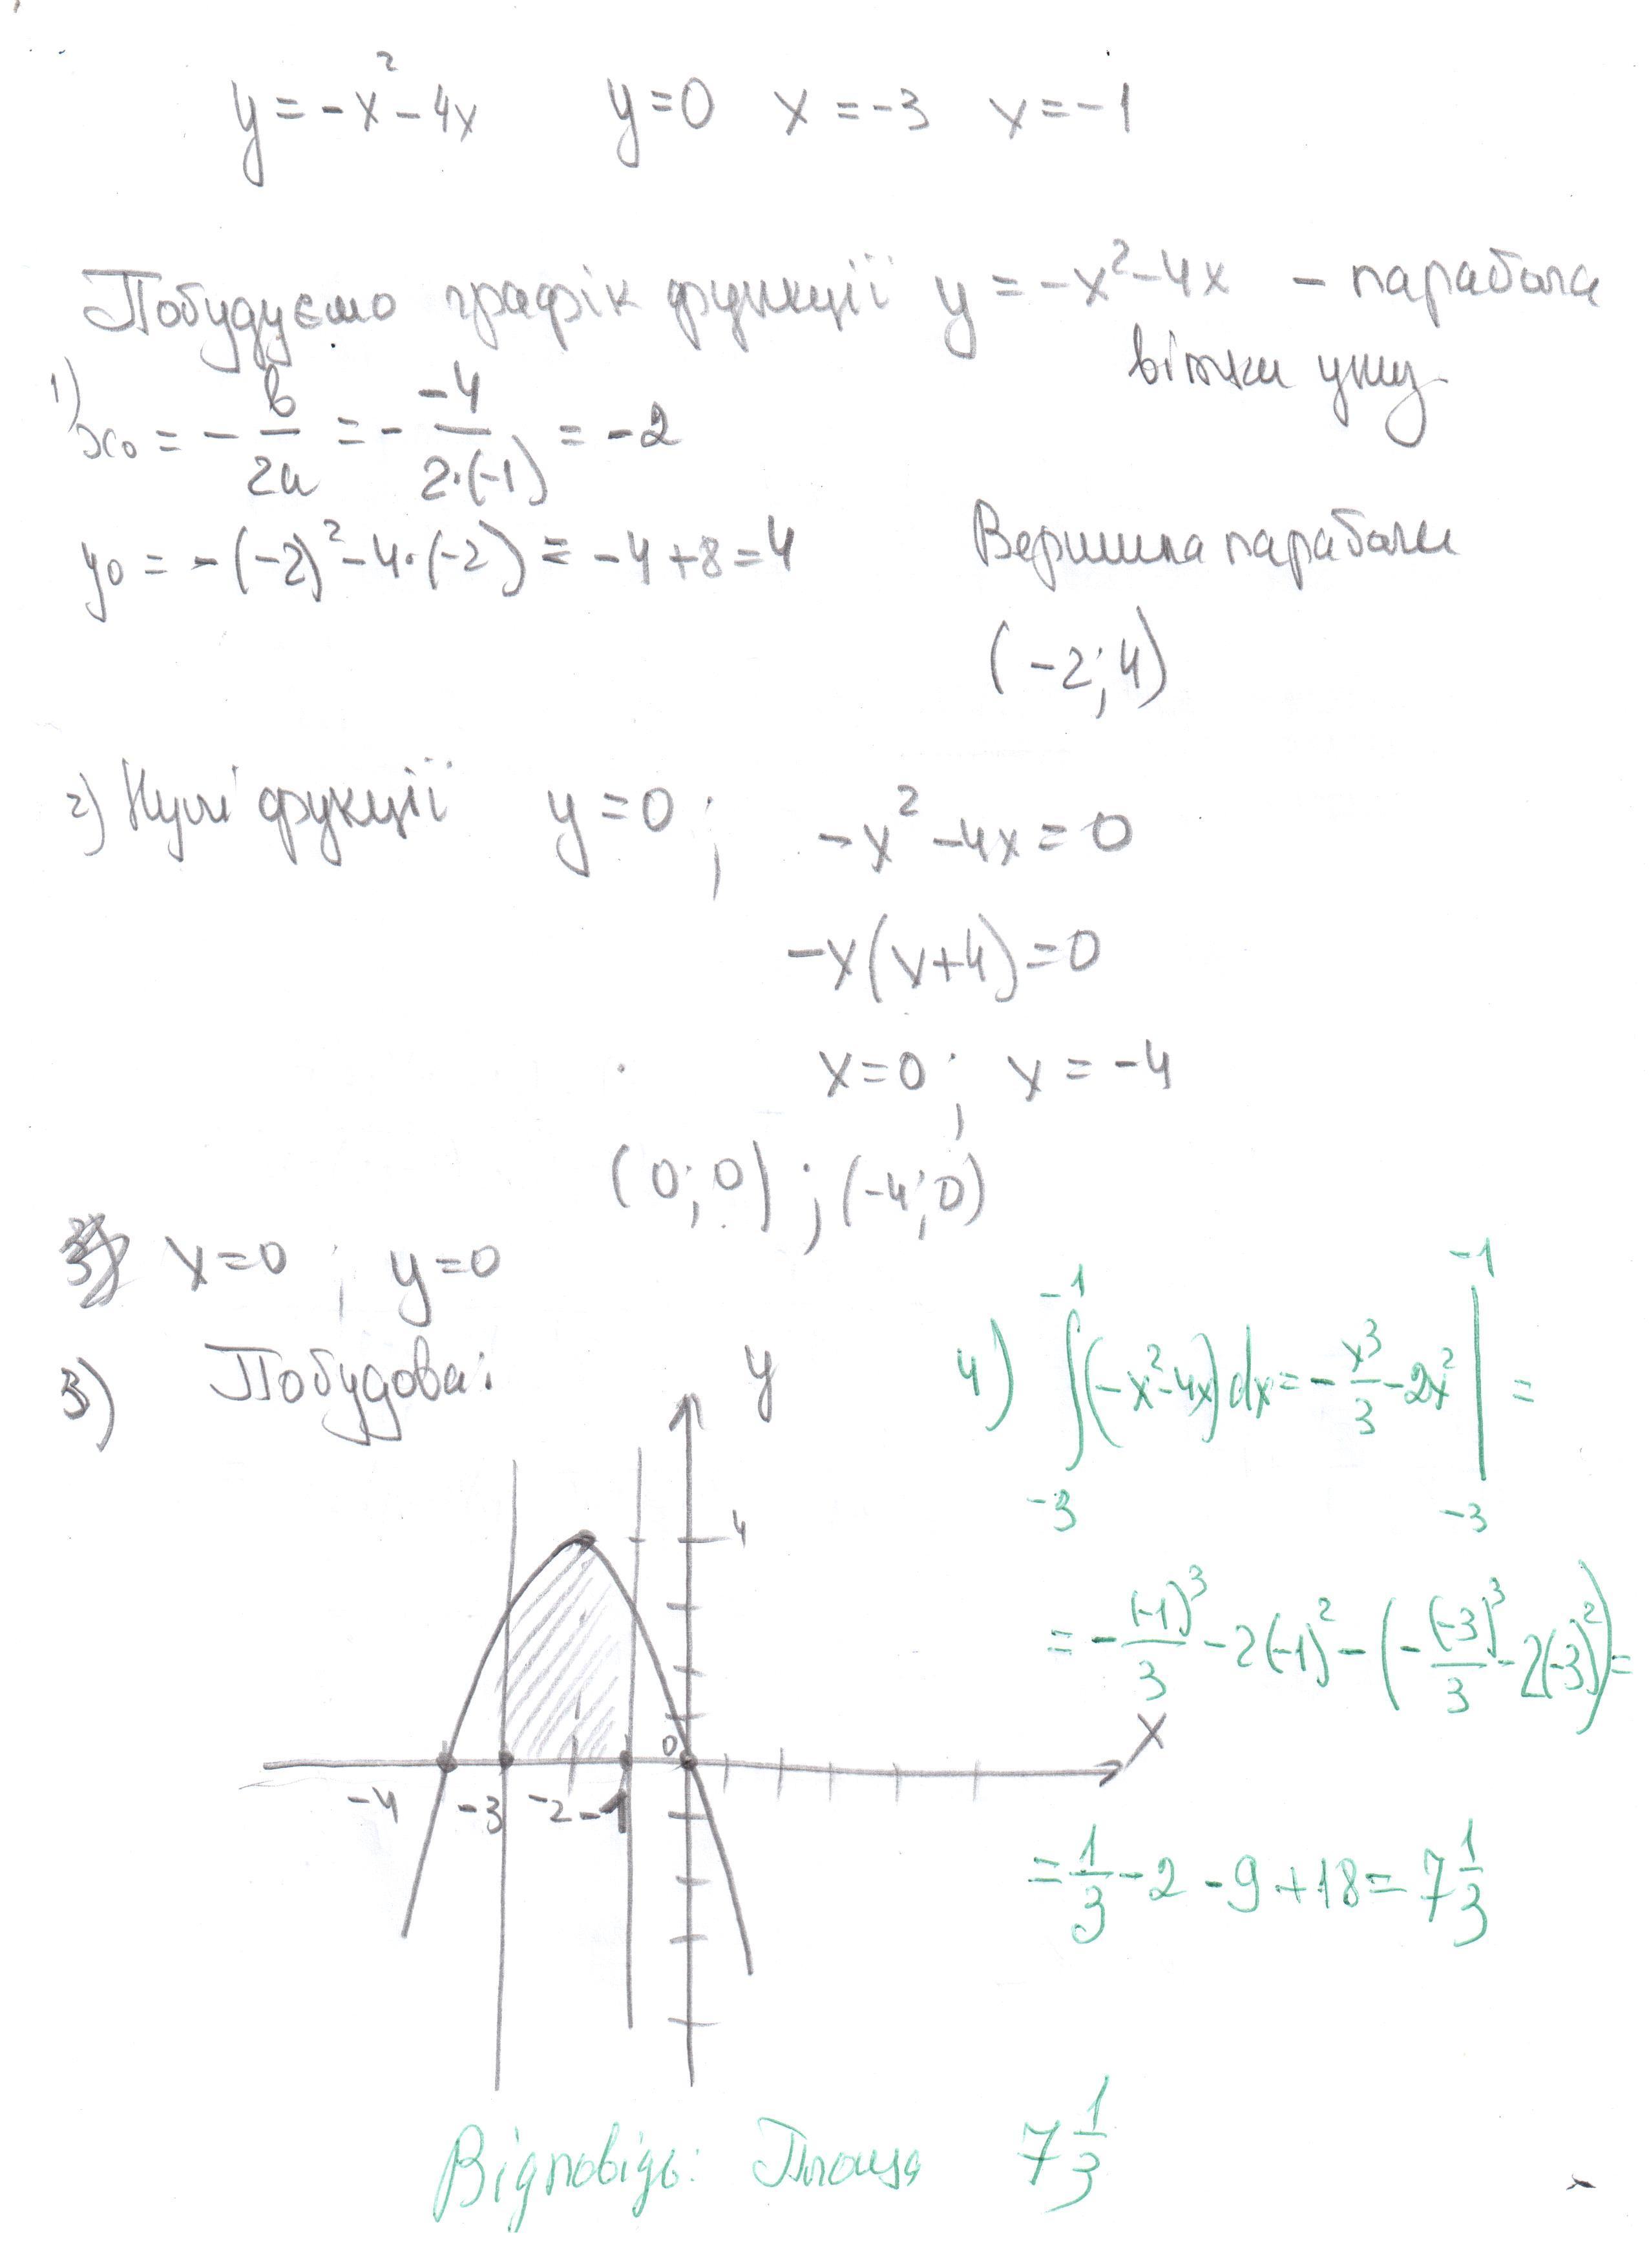 y = -x² - 4x y = 0 x = -3 x = -1
Побудуємо графік функції y = -x² - 4x - парабола
вітки униз
1) x₀ = - в/2а = - -4/2·(-1) = -2
y₀ = -(-2)² - 4·(-2) = -4 + 8 = 4 Вершина параболи
(-2; 4)
2) Нулі фукції y = 0; -x² - 4x = 0
-x(x+4) = 0
x = 0; x = -4
(0; 0); (-4; 0)
x = 0; y = 0
3) Побудова:
y
4
0
x
-4 -3 -2 -1
4) ∫₋₃⁻¹ (-x² - 4x) dx = - x³/3 - 2x² |₋₃⁻¹ =
= - (-1)³/3 - 2(-1)² - (- (-3)³/3 - 2(-3)²) =
= 1/3 - 2 - 9 + 18 = 7 1/3
Відповідь: Площа 7 1/3